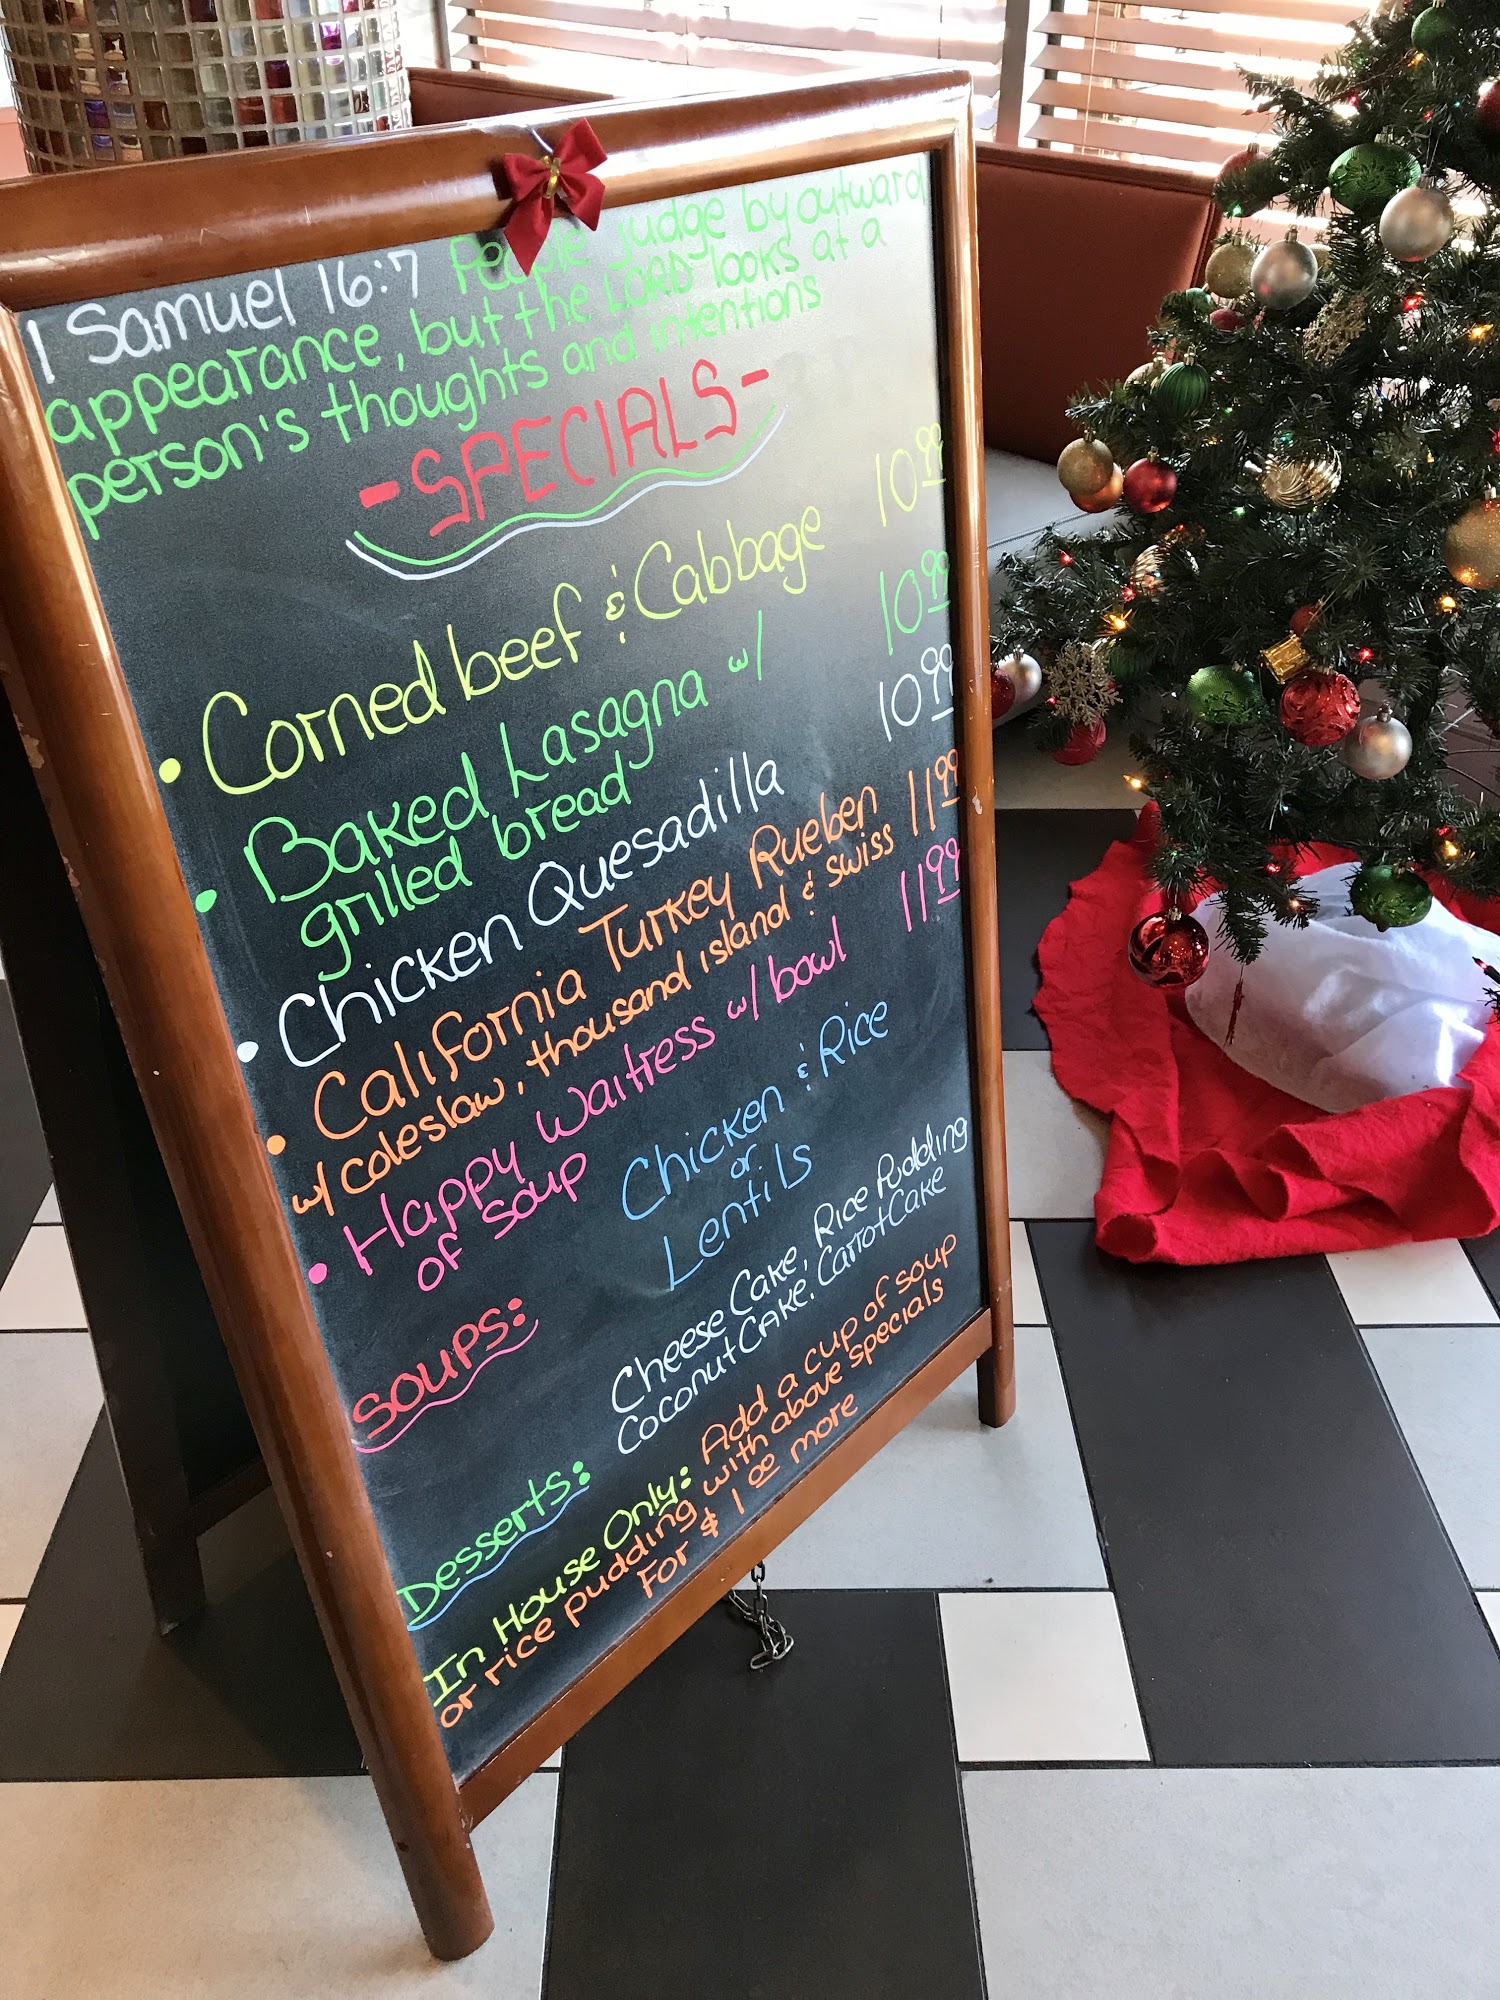 1 Samuel 16:7 People judge by outward
appearance, but the LORD looks at a
person's thoughts and intentions
-SPECIALS-
• Corned beef & Cabbage 10.99
• Baked Lasagna w/ 10.99
grilled bread
• Chicken Quesadilla 10.99
• California Turkey Rueben 11.99
w/ coleslaw, thousand island & swiss
• Happy Waitress w/ bowl 11.99
of soup
SOUPS: Chicken & Rice
or
Lentils
Desserts: Cheese Cake, Rice Pudding
Coconut CAKE, Carrot Cake
In House Only: Add a cup of soup
or rice pudding with above specials
For $1.00 more